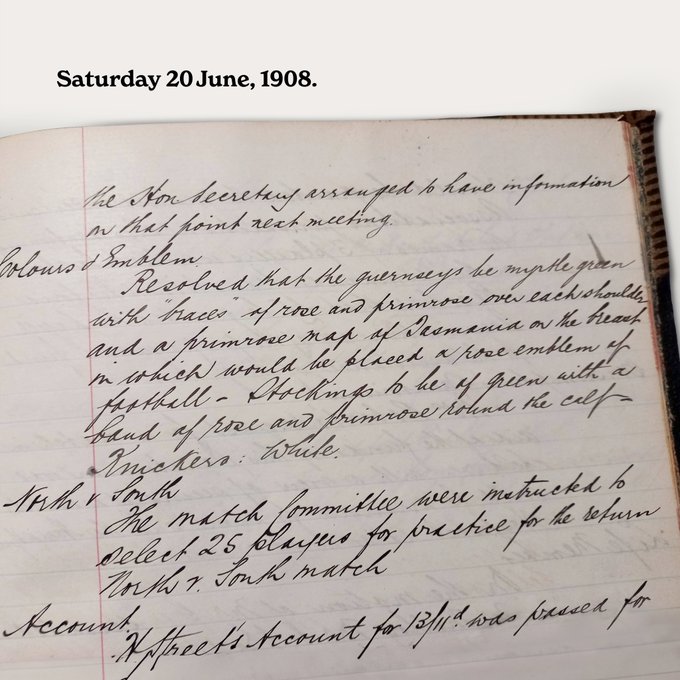 Saturday 20 June, 1908.
the Hon Secretary arranged to have information
on that point next meeting.
Colours & Emblem
Resolved that the guernseys be myrtle green
with "braces" of rose and primrose over each shoulder
and a primrose map of Tasmania on the breast
in which would be placed a rose emblem of
football - Stockings to be of green with a
band of rose and primrose round the calf -
Knickers: White.
North v South
The match Committee were instructed to
select 25 players for practice for the return
North v. South match
Account.
H Street's Account for 13/11d was passed for